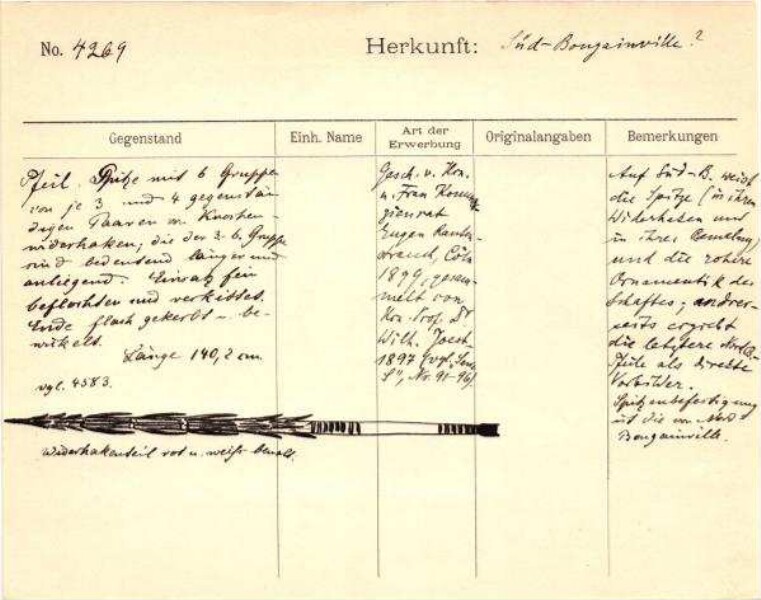 No. 4269
Herkunft: Süd-Bougainville?
Gegenstand
Einh. Name
Art der Erwerbung
Originalangaben
Bemerkungen
Pfeil. Spitze mit 6 Gruppen
von je 3 und 4 gegenstän-
digen Paaren v. Knochen-
widerhaken, die der 3.-6. Gruppe
sind bedeutend länger und
anliegend. Einsatz fein
beflochten und verkittet.
Ende flach gekerbt u. be-
wickelt.
Länge 140,2 cm.
vgl. 4583.
Widerhakenteil rot u. weiß bemalt.
Gesch. v. Hrn.
u. Frau Kommer-
zienrat
Eugen Rauten-
strauch, Cöln
1899, gesam-
melt von
Hrn. Prof. Dr
Wilh. Joest
1897 (vgl.
Nr. 91-96)
Auf Süd-B. weist
die Spitze (in ihren
Widerhaken und
in ihrer Bemalung)
und die rohere
Ornamentik des
Schaftes; andrer-
seits ergiebt
die letztere Nord-B.-
Pfeile als direkte
Vorbilder.
Spitzenbefestigung
ist die von Nord-
Bougainville.